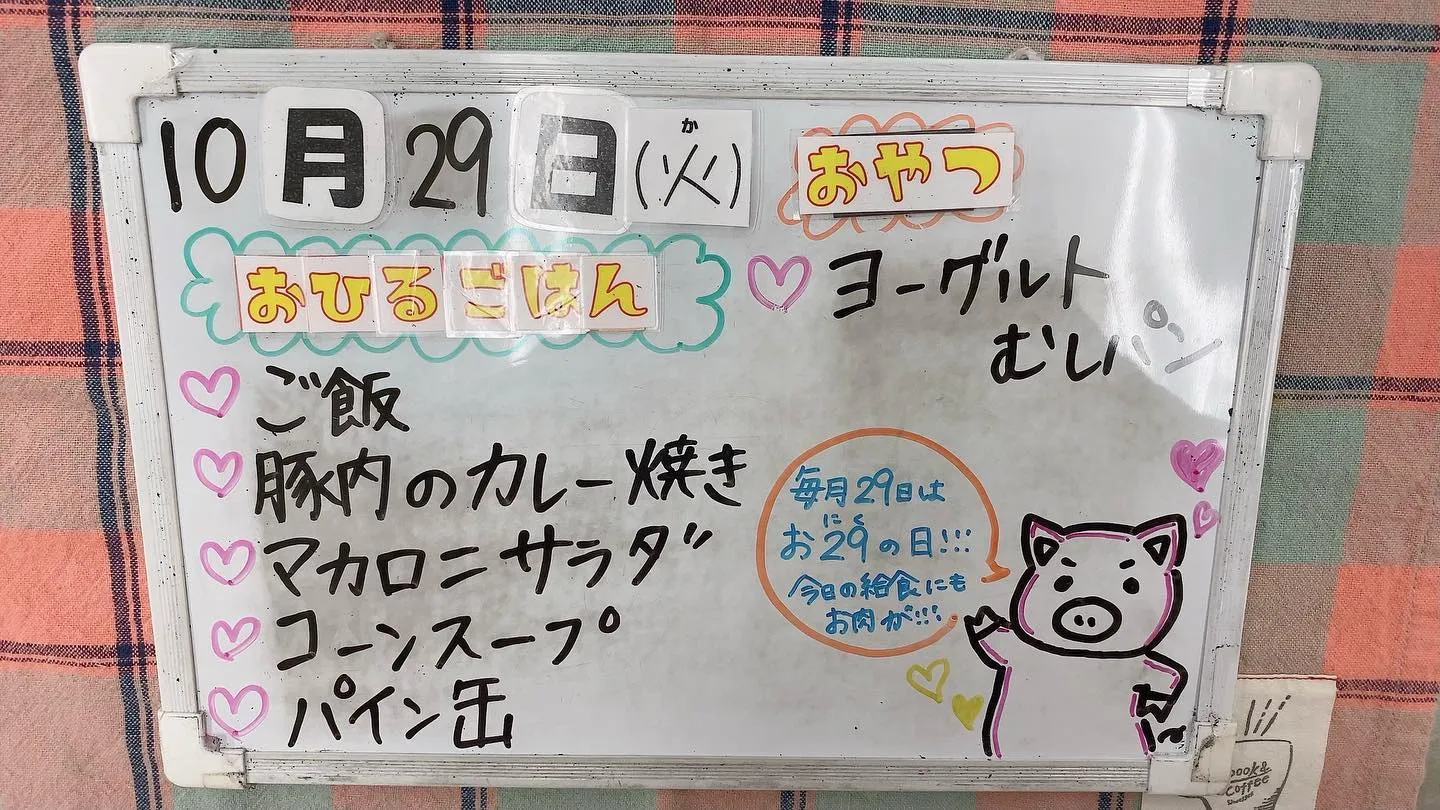 10月29日(火)
か
おひるごはん
ご飯
豚肉のカレー焼き
マカロニサラダ
コーンスープ
パイン缶
おやつ
ヨーグルト
むしパン
毎月29日は
にく
お29の日!!!
今日の給食にも
お肉が!!!
book&
coffee